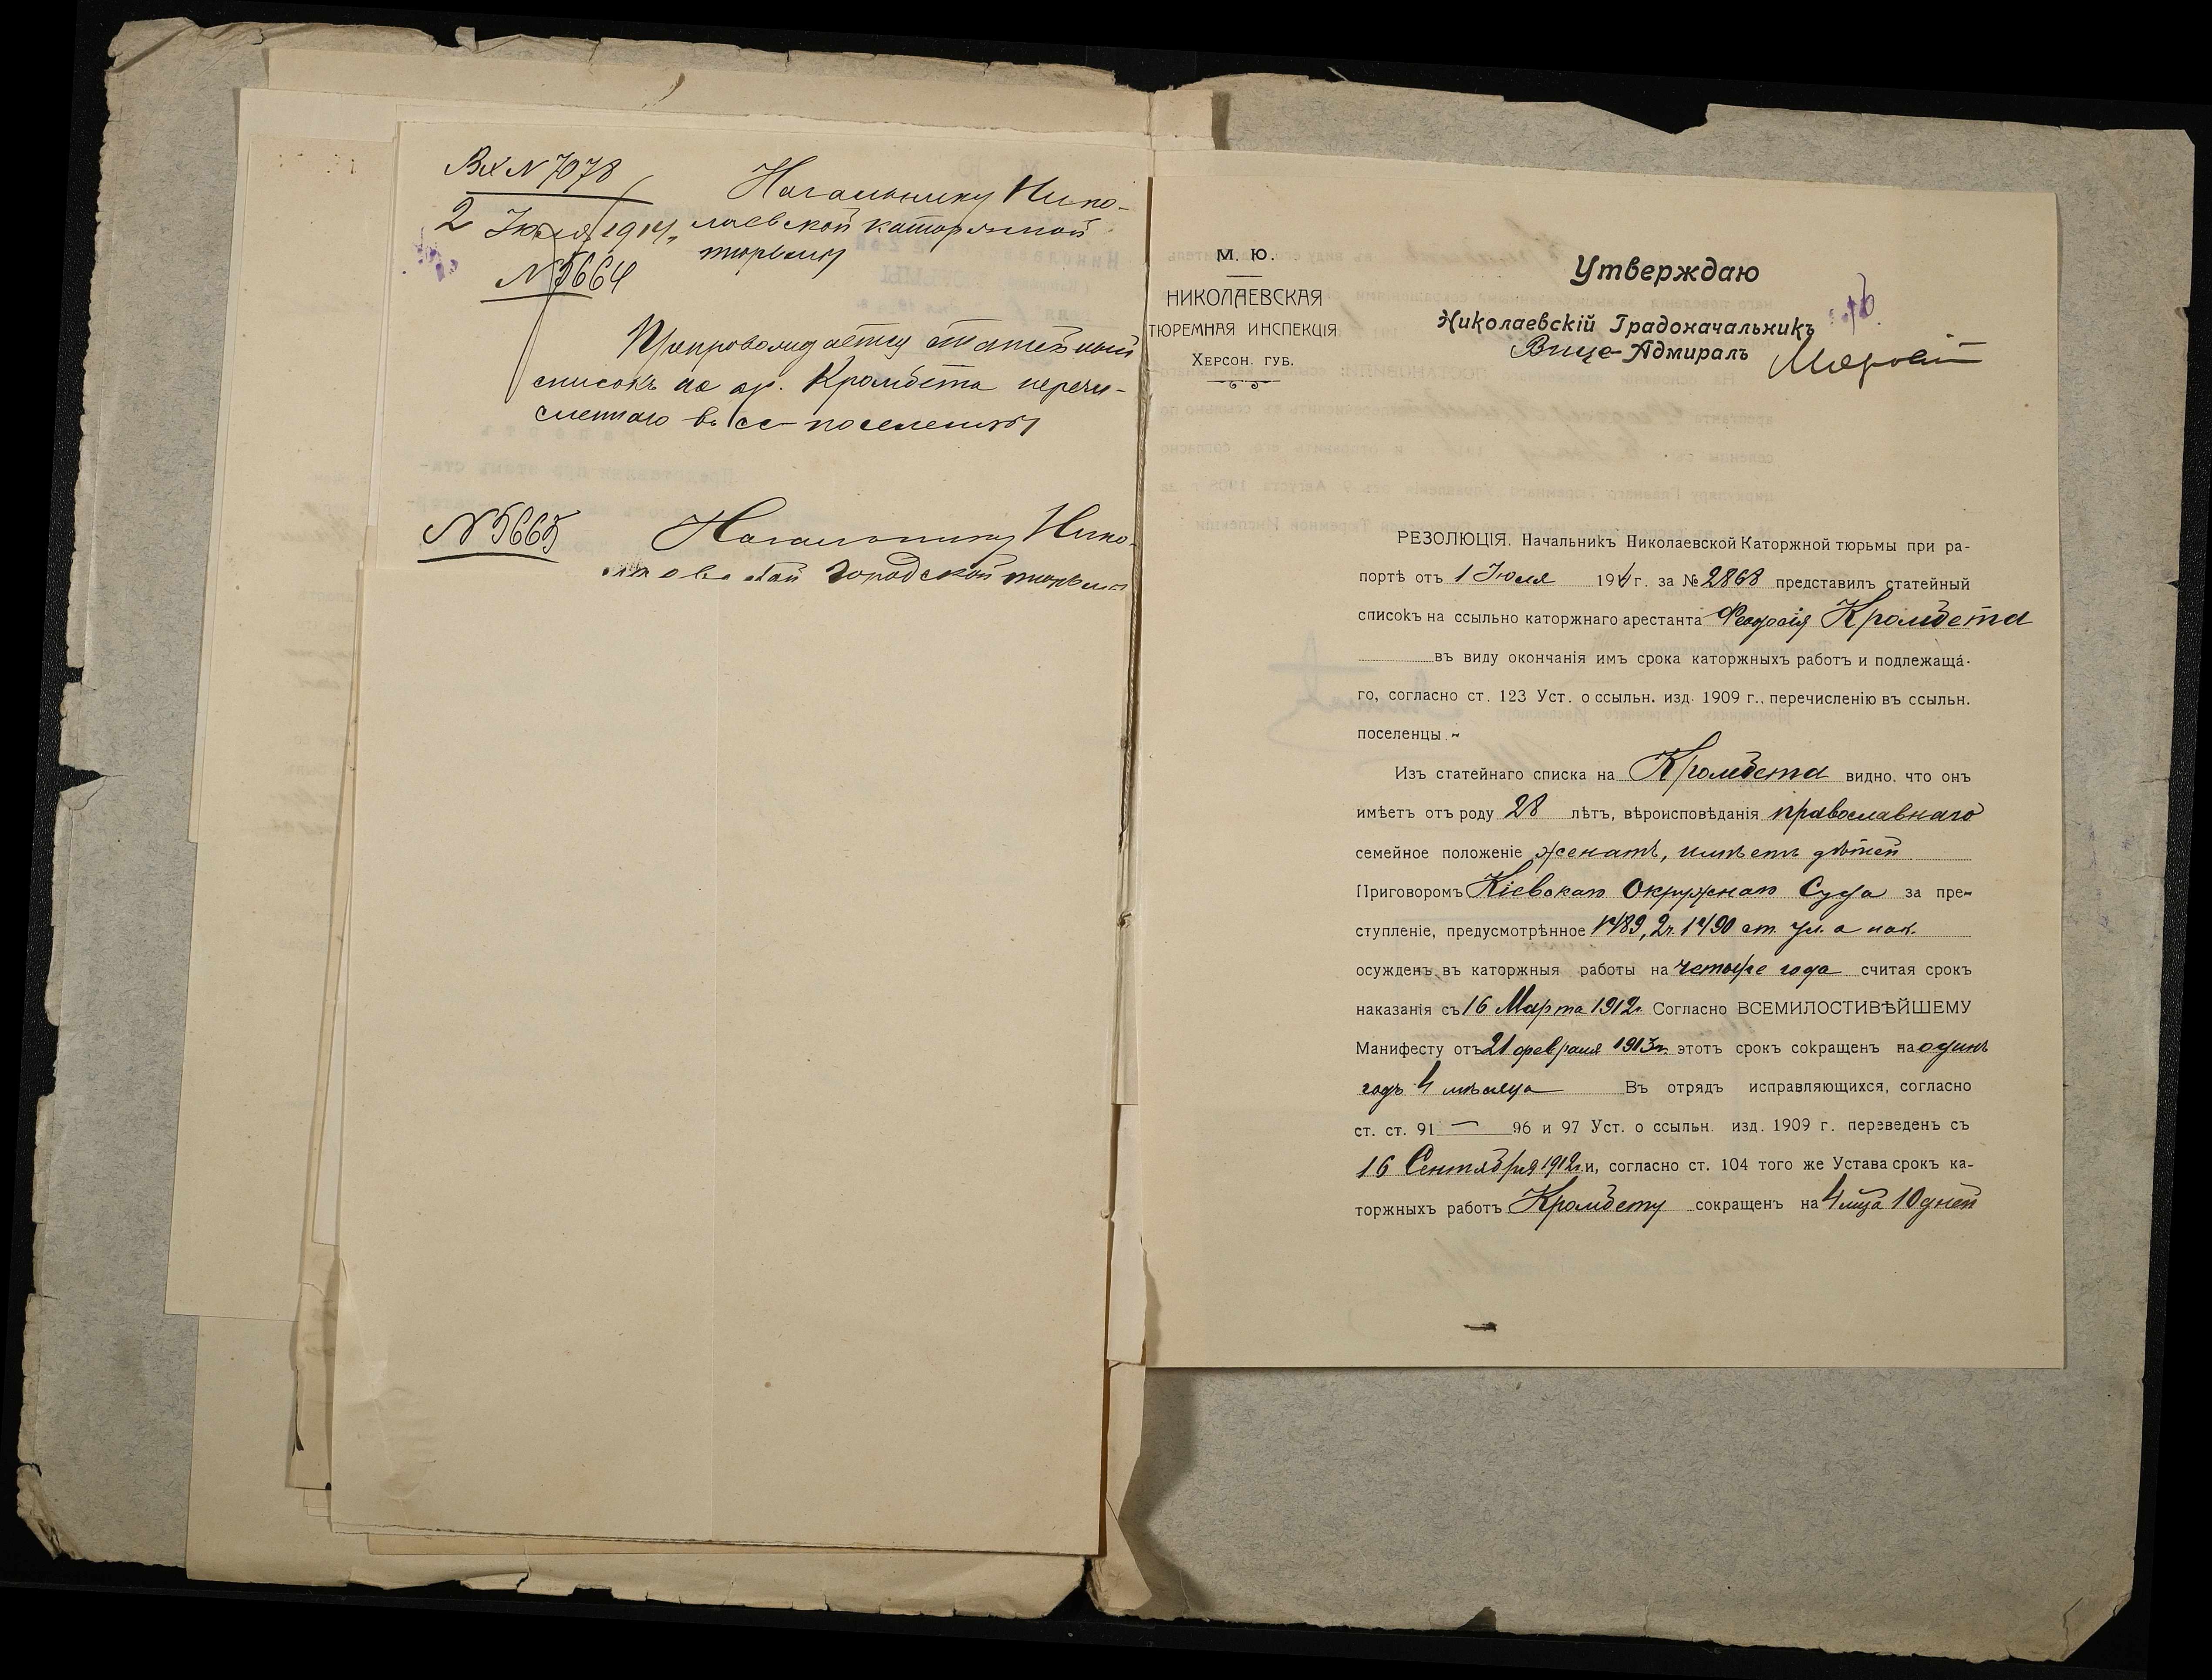 Вх N 7078
2 Июля 1914 г.
N 5664
Начальнику Нико-
лаевской каторжной
тюрьмы
Препровождается статейный
списокъ на ар. Кромбета перечи-
сленнаго въ сс-поселенцы
N 5665
Начальнику Нико-
лаевской Городской тюрьмы
М. Ю.
НИКОЛАЕВСКАЯ
ТЮРЕМНАЯ ИНСПЕКЦІЯ
ХЕРСОН. ГУБ.
Утверждаю
Николаевскій Градоначальникъ
Вице-Адмиралъ
РЕЗОЛЮЦІЯ. Начальникъ Николаевской Каторжной тюрьмы при ра-
портѣ отъ 1 Июля 1914 г. за № 2868 представилъ статейный
списокъ на ссыльно каторжнаго арестанта Феодосія Кромбета
въ виду окончанія имъ срока каторжныхъ работъ и подлежаща-
го, согласно ст. 123 Уст. о ссыльн. изд. 1909 г., перечисленію въ ссыльн.
поселенцы.
Изъ статейнаго списка на Кромбета видно, что онъ
имѣетъ отъ роду 28 лѣтъ, вѣроисповѣданія православнаго
семейное положеніе женатъ, имѣетъ дѣтей
Приговоромъ Кіевскаго Окружнаго Суда за пре-
ступленіе, предусмотрѣнное 1489, 2 ч. 1490 ст. Ул. о нак.
осужденъ въ каторжныя работы на четыре года считая срокъ
наказанія съ 16 Марта 1912 г. Согласно ВСЕМИЛОСТИВѢЙШЕМУ
Манифесту отъ 21 февраля 1913 г. этотъ срокъ сокращенъ на одинъ
годъ 4 мѣсяца Въ отрядъ исправляющихся, согласно
ст. ст. 91 — 96 и 97 Уст. о ссыльн. изд. 1909 г. переведенъ съ
16 Сентября 1912 г. и, согласно ст. 104 того же Устава срокъ ка-
торжныхъ работъ Кромбету сокращенъ на 4 мца 10 дней